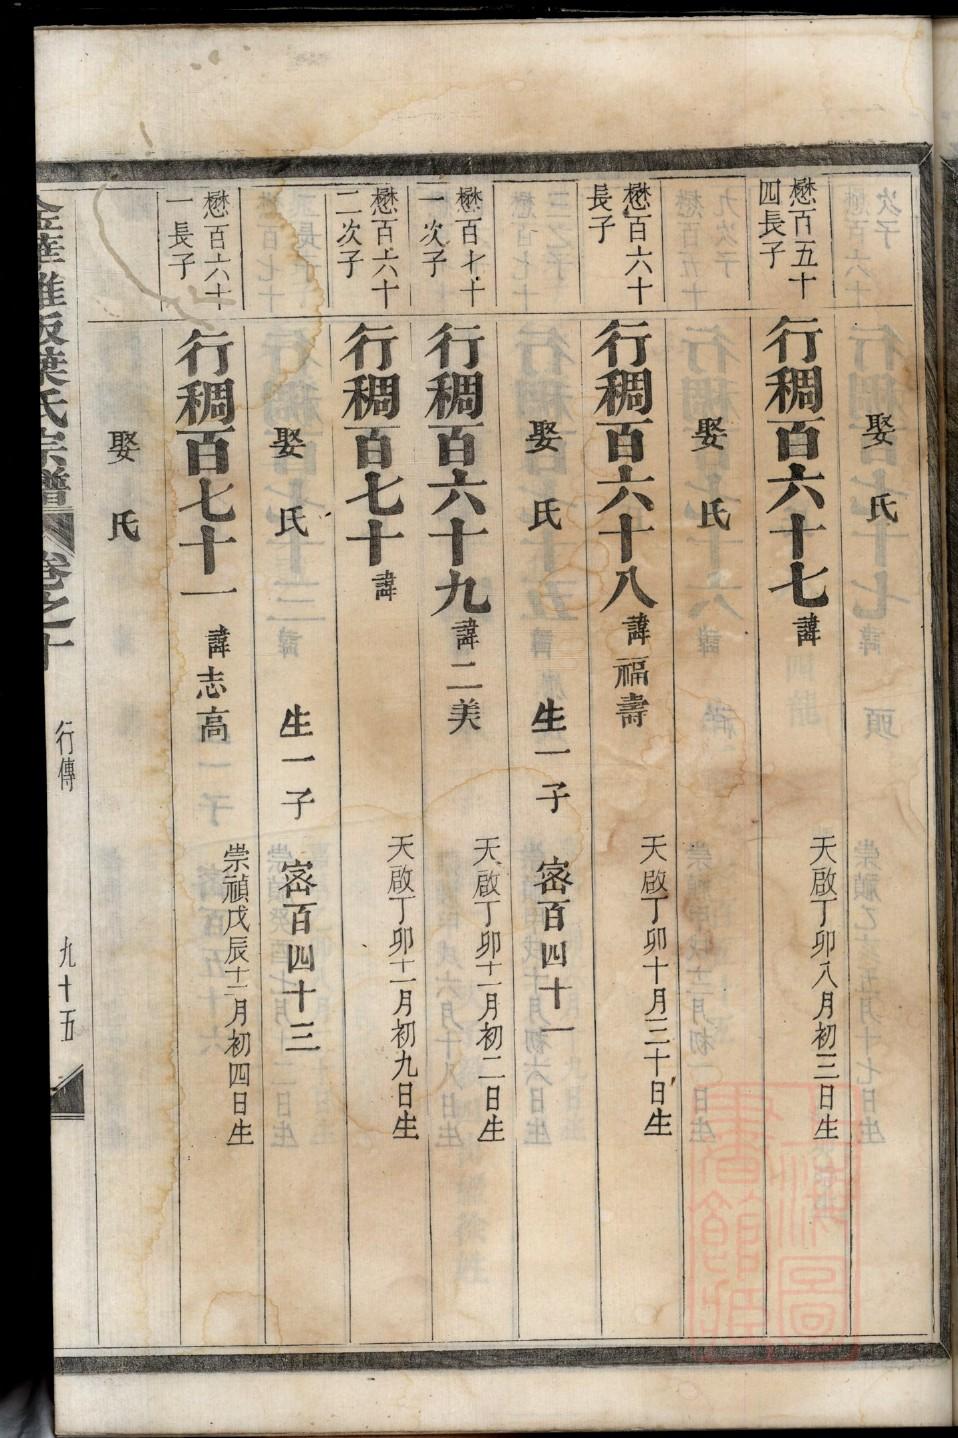 娶 氏
懋百五十
四長子
行稠百六十七 諱 天啟丁卯八月初三日生
娶 氏
懋百六十
長子
行稠百六十八 諱福壽 天啟丁卯十月三十日生
娶 氏 生一子 密百四十一
懋百六十
一次子
行稠百六十九 諱二美 天啟丁卯十一月初二日生
懋百六十
二次子
行稠百七十 諱 天啟丁卯十二月初九日生
娶 氏 生一子 密百四十三
懋百六十
一長子
行稠百七十一 諱志高 崇禎戊辰十二月初四日生
娶 氏
葉氏宗譜 卷之十 行傳 九十五